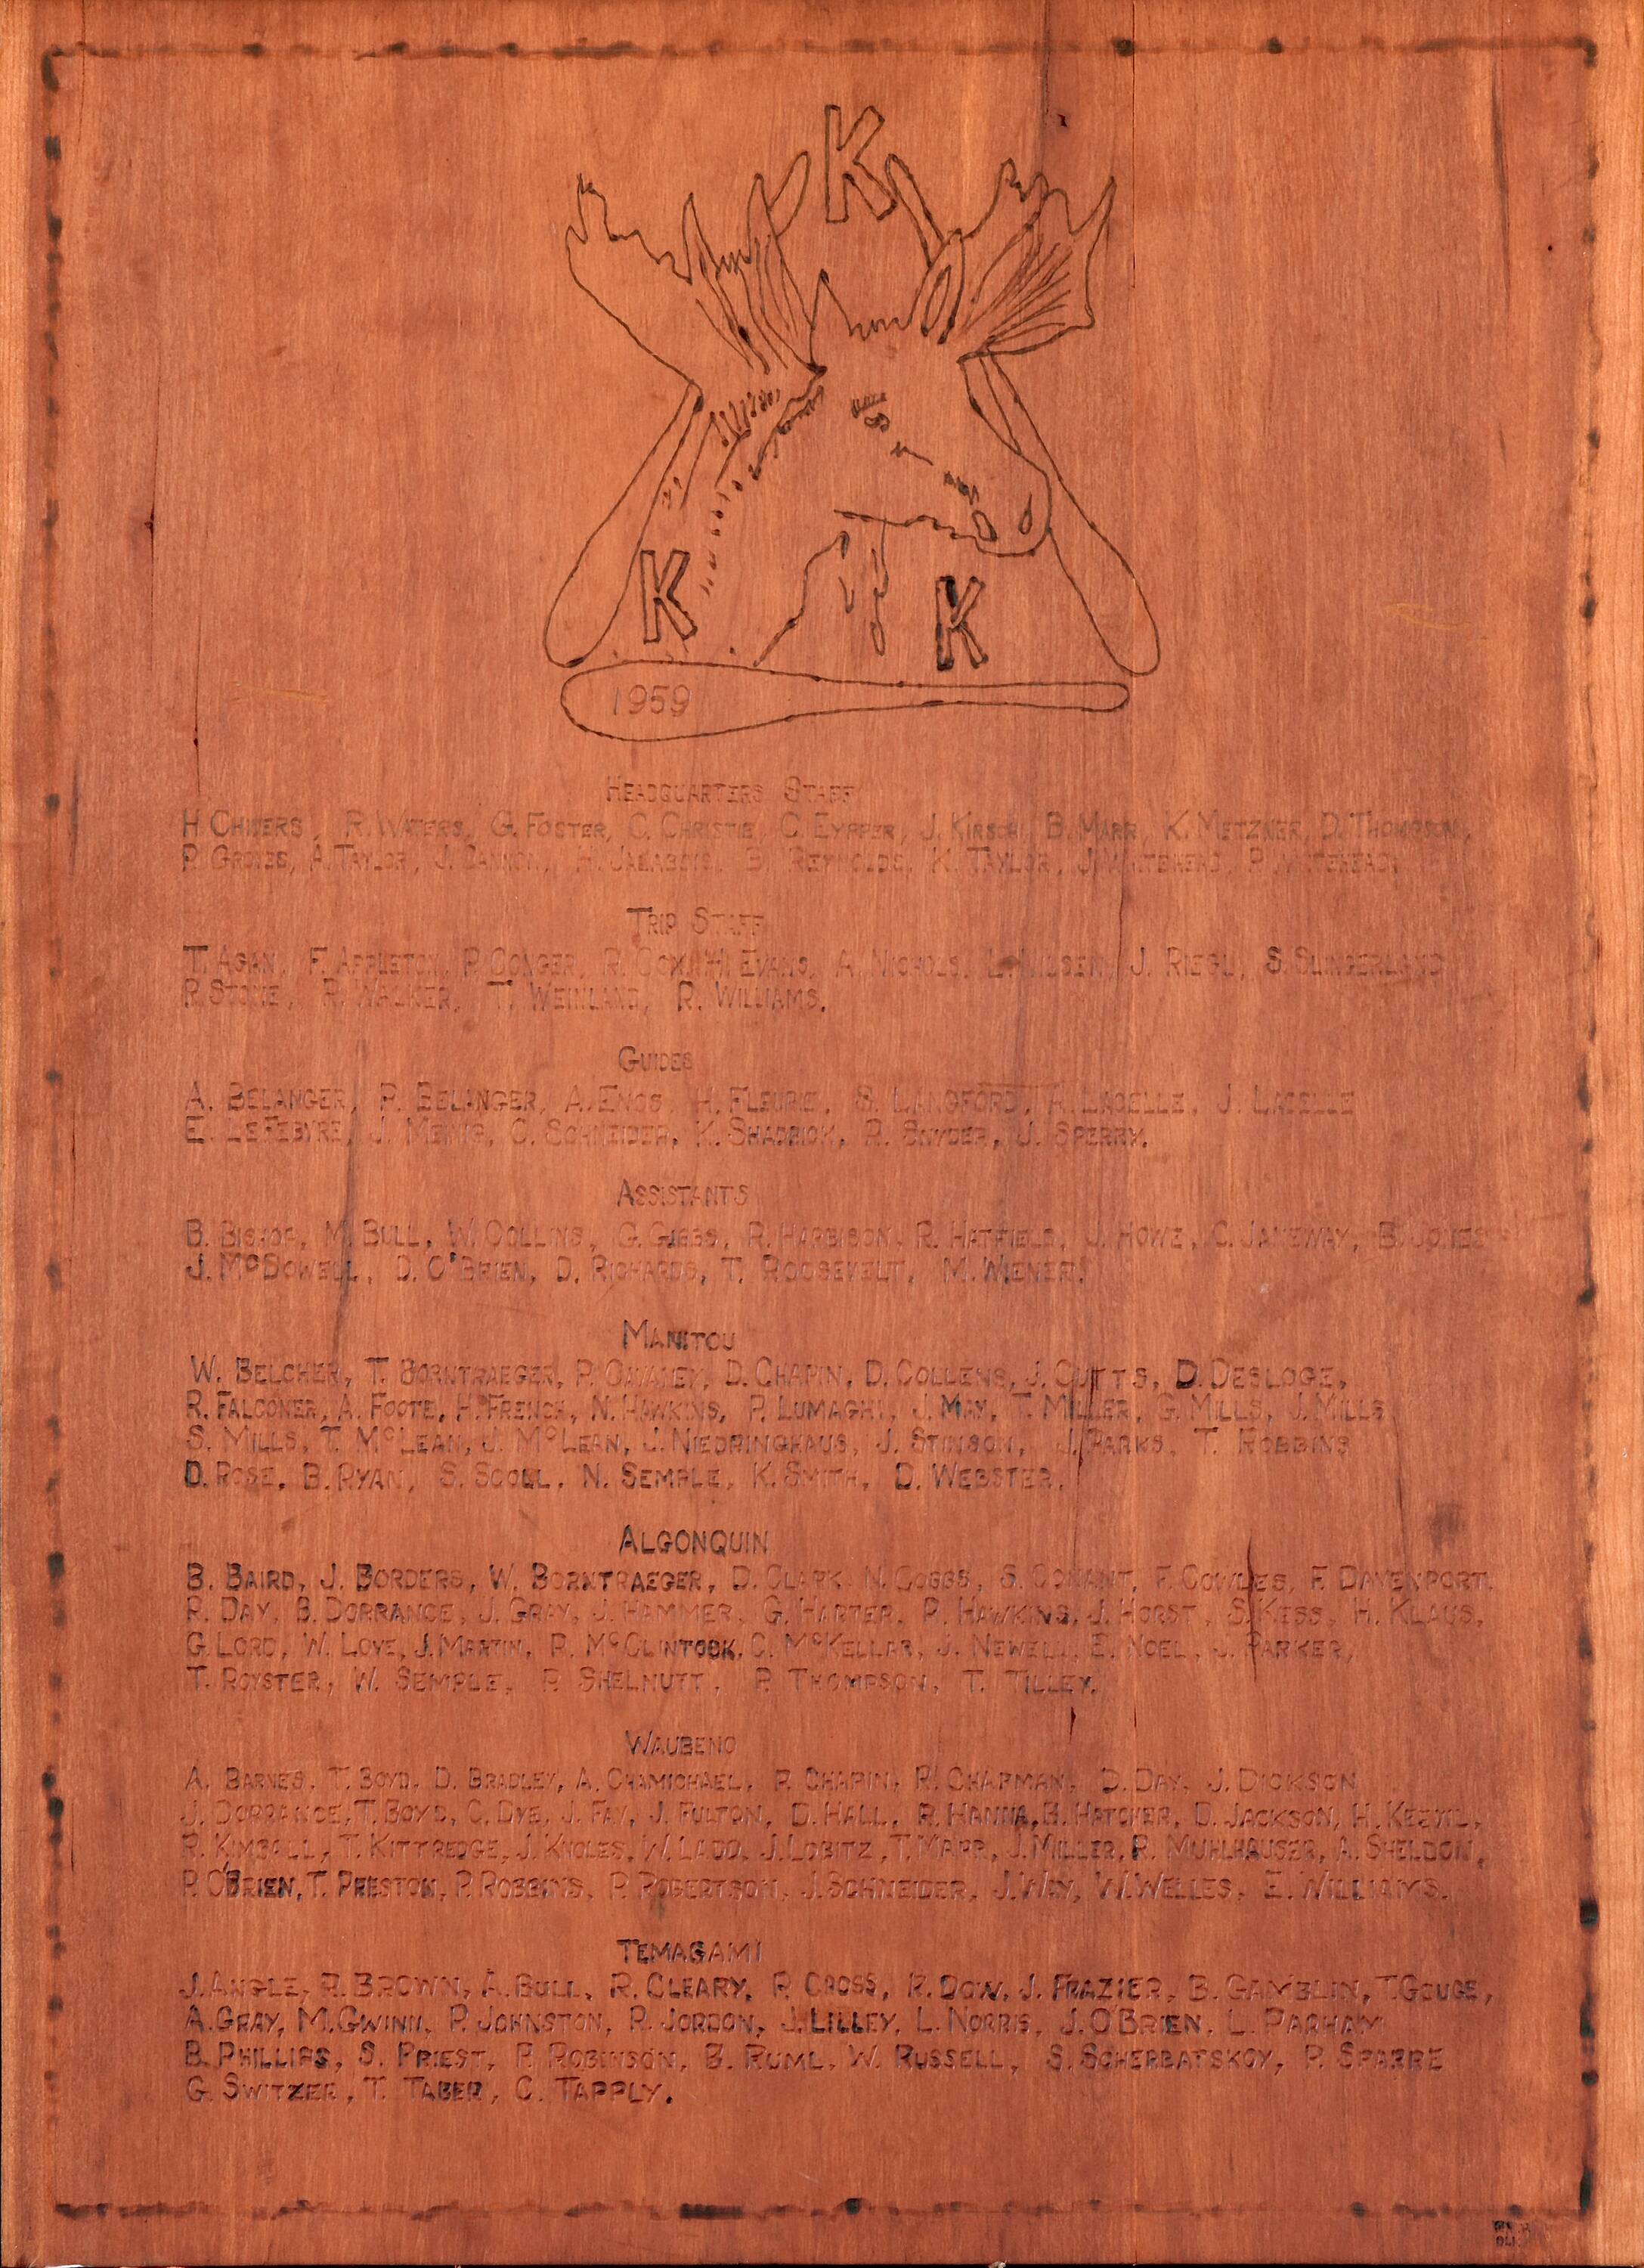 K
K
K
1959
HEADQUARTERS STAFF
H. CHIVERS, R. WATERS, G. FOSTER, C. CHRISTIE, C. EYPPER, J. KIRSCH, B. MARR, K. METZNER, D. THOMPSON,
P. A. TAYLOR, J. CANNON, H. B. REYNOLDS, K. TAYLOR, J. WHITEHEAD, P. WHITEHEAD
TRIP STAFF
T. AGAN, F. APPLETON, P. CONGER, R. COX, H. EVANS, A. NICHOLS, L. NILSEN, J. RIEGL, S. SLINGERLAND
R. STONE, R. WALKER, T. WEINLAND, R. WILLIAMS.
GUIDES
A. BELANGER, P. BELANGER, A. ENOS, H. FLEURIE, S. LANGFORD, H. LACELLE, J. LACELLE
E. LEFEBVRE, J. MENIG, C. SCHNEIDER, K. SHADRICK, R. SNYDER, J. SPERRY.
ASSISTANTS
B. BISHOP, M. BULL, W. COLLINS, G. GIBBS, R. HARBISON, R. HATFIELD, J. HOWE, C. JANEWAY, B. JONES
J. McDOWELL, D. O'BRIEN, D. RICHARDS, T. ROOSEVELT, M. WIENER.
MANITOU
W. BELCHER, T. BORNTRAEGER, P. D. CHAPIN, D. COLLENS, J. CUTTS, D. DESLOGE,
R. FALCONER, A. FOOTE, H. FRENCH, N. HAWKINS, P. LUMAGHI, J. MAY, T. MILLER, G. MILLS, J. MILLS
S. MILLS, T. McLEAN, J. McLEAN, J. NIEDRINGHAUS, J. STINSON, J. PARKS, T. ROBBINS
D. ROSE, B. RYAN, S. SCULL, N. SEMPLE, K. SMITH, D. WEBSTER.
ALGONQUIN
B. BAIRD, J. BORDERS, W. BORNTRAEGER, D. CLARK, N. COBBS, S. CONANT, F. COWLES, F. DAVENPORT,
R. DAY, B. DORRANCE, J. GRAY, J. HAMMER, G. HARTER, P. HAWKINS, J. HORST, S. KESS, H. KLAUS,
G. LORD, W. LOVE, J. MARTIN, R. McCLINTOCK, C. McKELLAR, J. NEWELL, E. NOEL, J. PARKER,
T. ROYSTER, W. SEMPLE, P. SHELNUTT, P. THOMPSON, T. TILLEY.
WAUBENO
A. BARNES, T. BOYD, D. BRADLEY, A. CHAMICHAEL, P. CHAPIN, R. CHAPMAN, D. DAY, J. DICKSON
J. DORRANCE, T. BOYD, C. DYE, J. FAY, J. FULTON, D. HALL, R. HANNA, B. HATCHER, D. JACKSON, H. KEEVIL,
R. KIMBALL, T. KITTREDGE, J. KNOLES, W. LADD, J. LOBITZ, T. MARR, J. MILLER, R. MUHLHAUSER, A. SHELDON,
P. O'BRIEN, T. PRESTON, P. ROBBINS, P. ROBERTSON, J. SCHNEIDER, J. WAY, W. WELLES, E. WILLIAMS.
TEMAGAMI
J. ANGLE, R. BROWN, A. BULL, R. CLEARY, P. CROSS, R. DOW, J. FRAZIER, B. GAMBLIN, T. GOUGE,
A. GRAY, M. GWINN, P. JOHNSTON, R. JORDON, J. LILLEY, L. NORRIS, J. O'BRIEN, L. PARHAM
B. PHILLIPS, S. PRIEST, P. ROBINSON, B. RUML, W. RUSSELL, S. SCHERBATSKOY, P. SPARRE
G. SWITZER, T. TABER, C. TAPPLY.